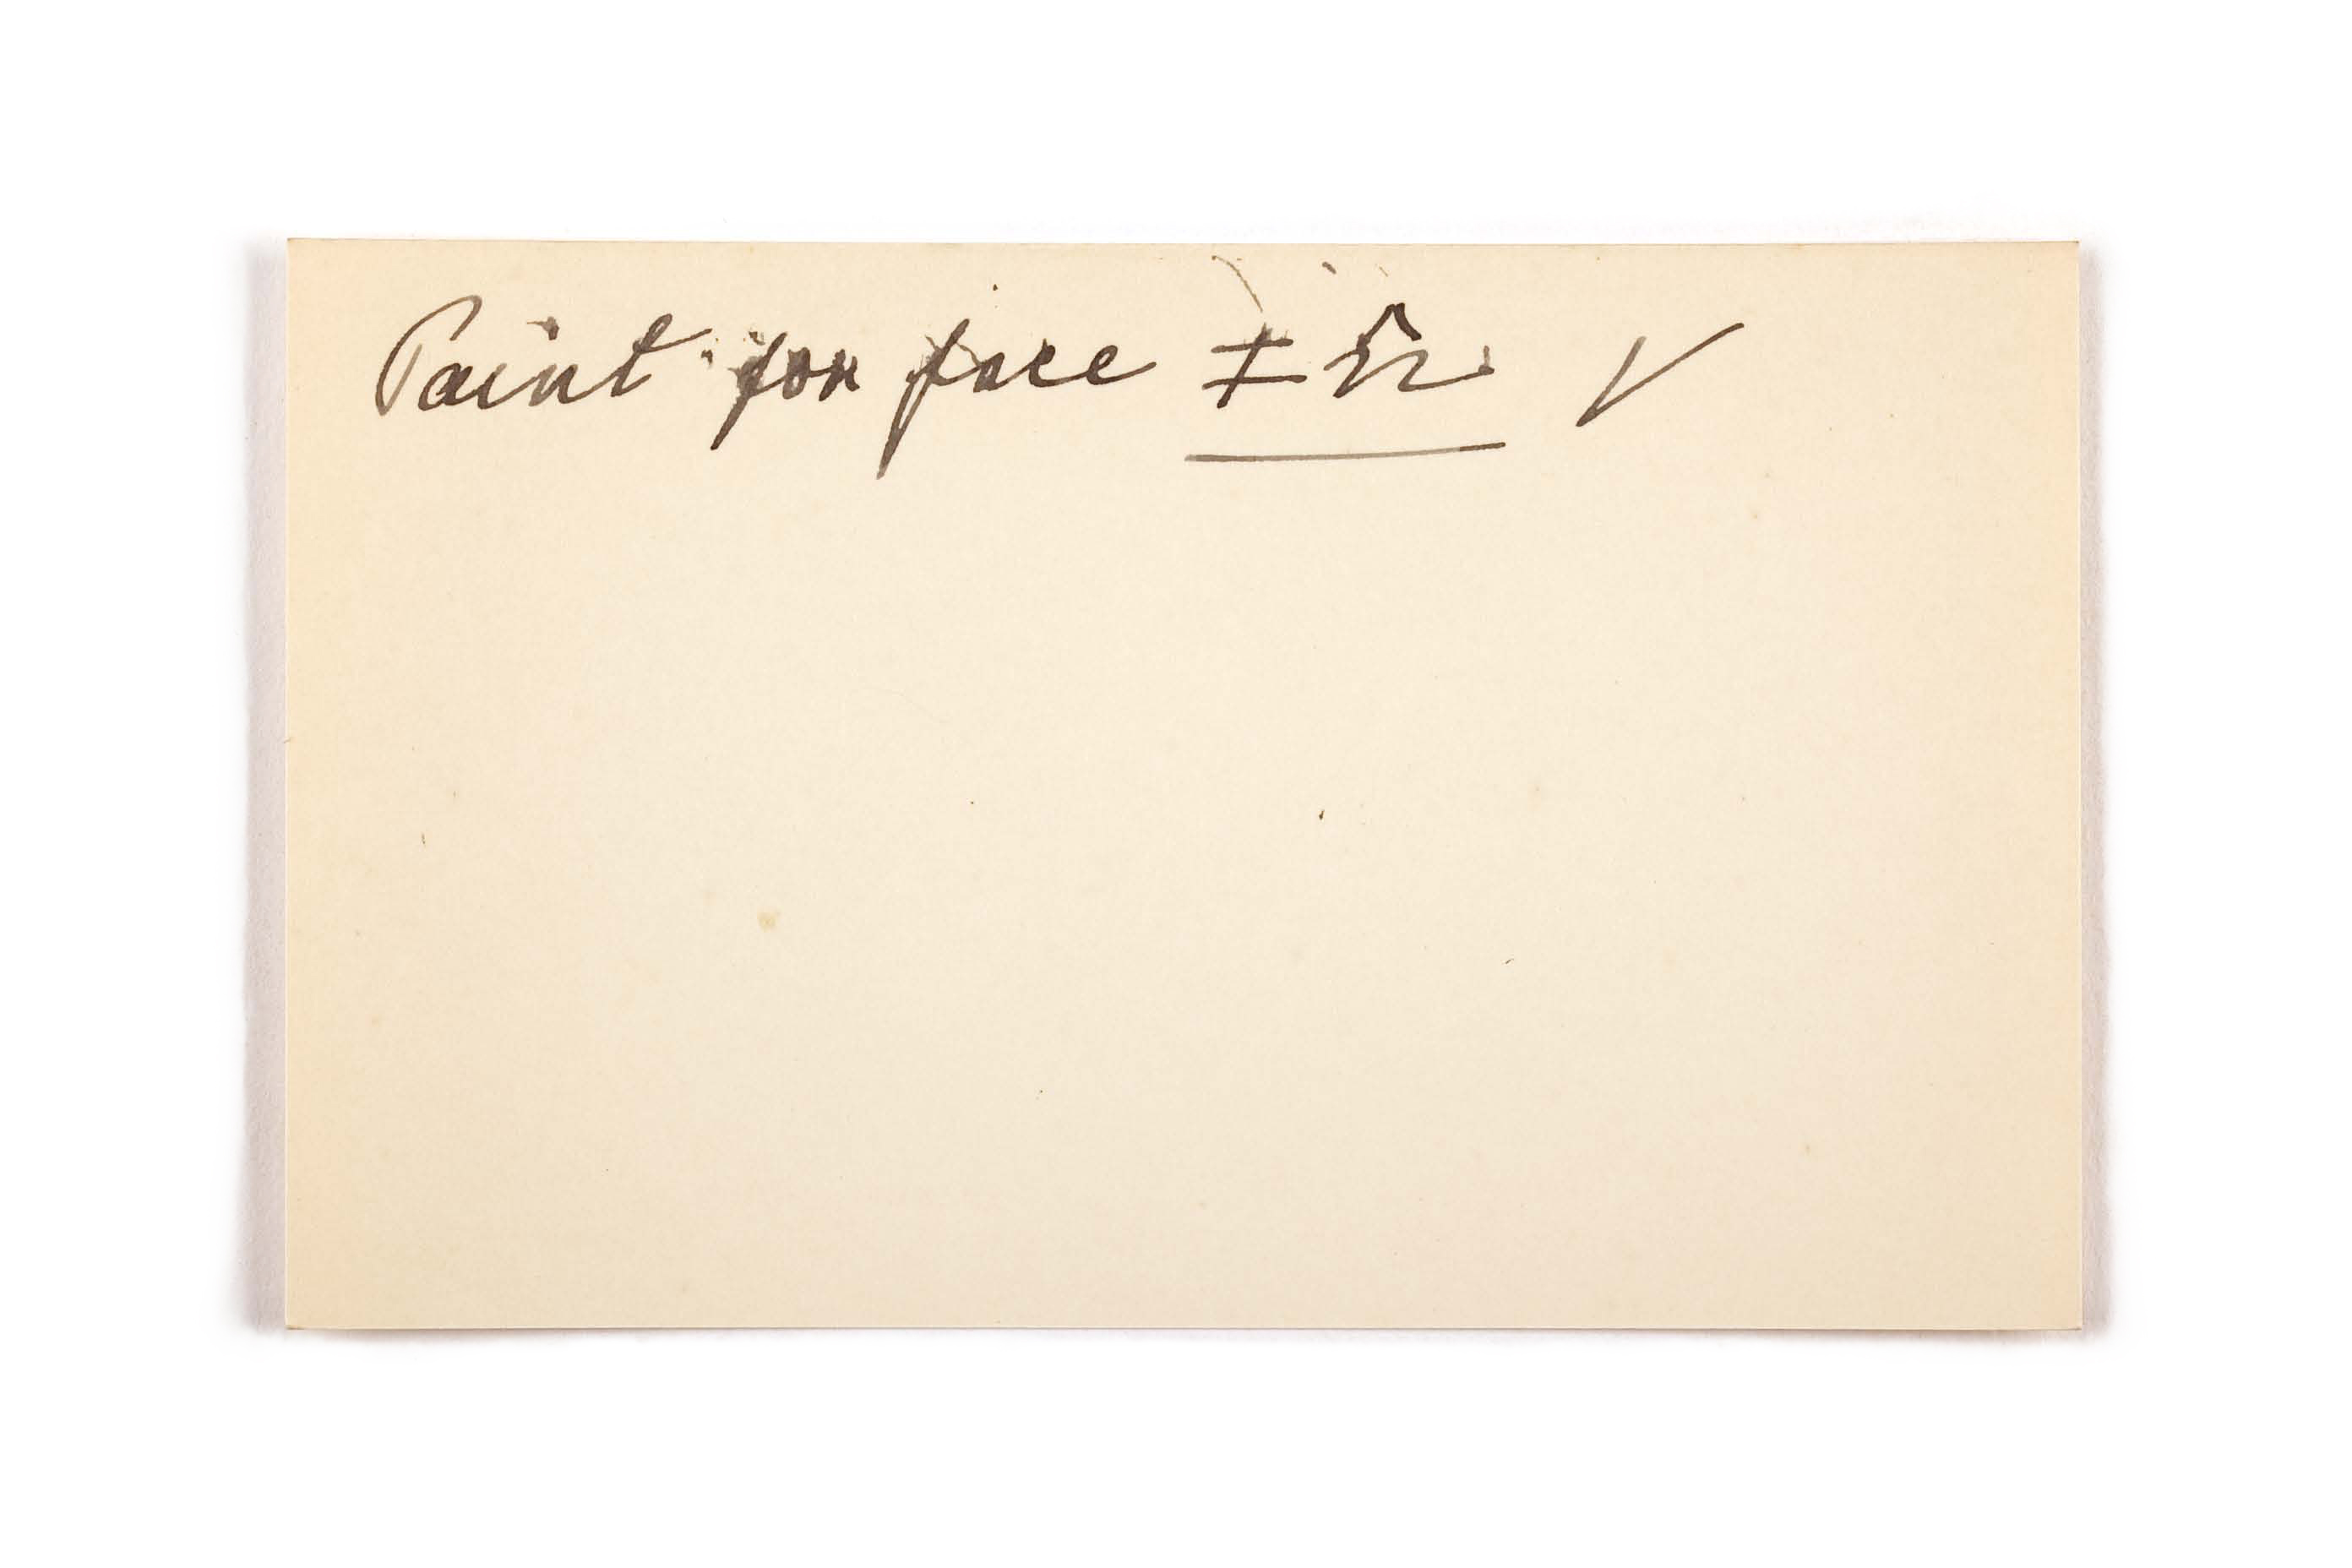 Paint for face